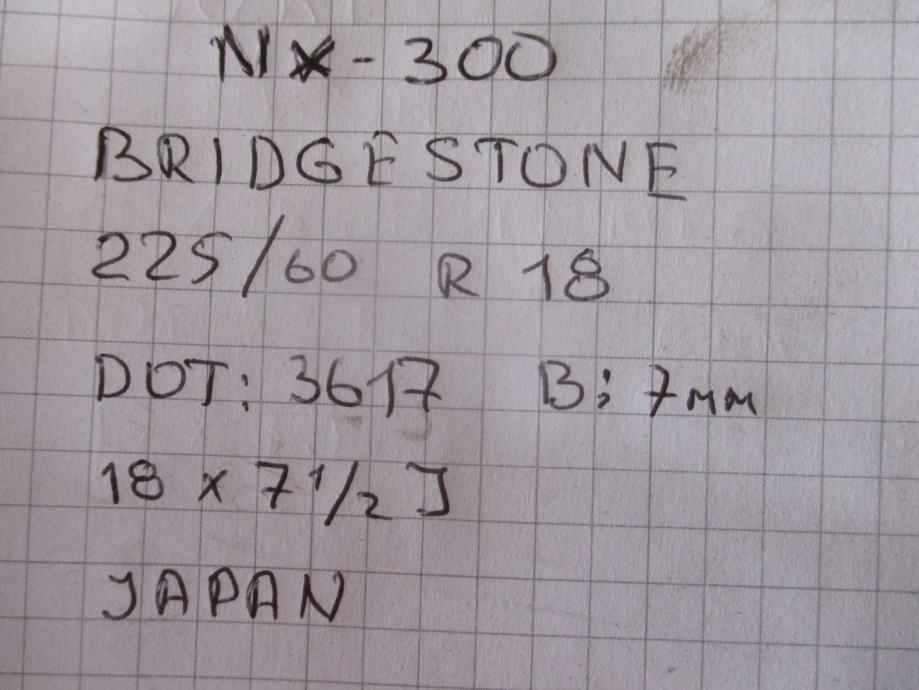 NX-300
BRIDGESTONE
225/60 R 18
DOT: 3617 B: 7мм
18 x 7 1/2 J
JAPAN